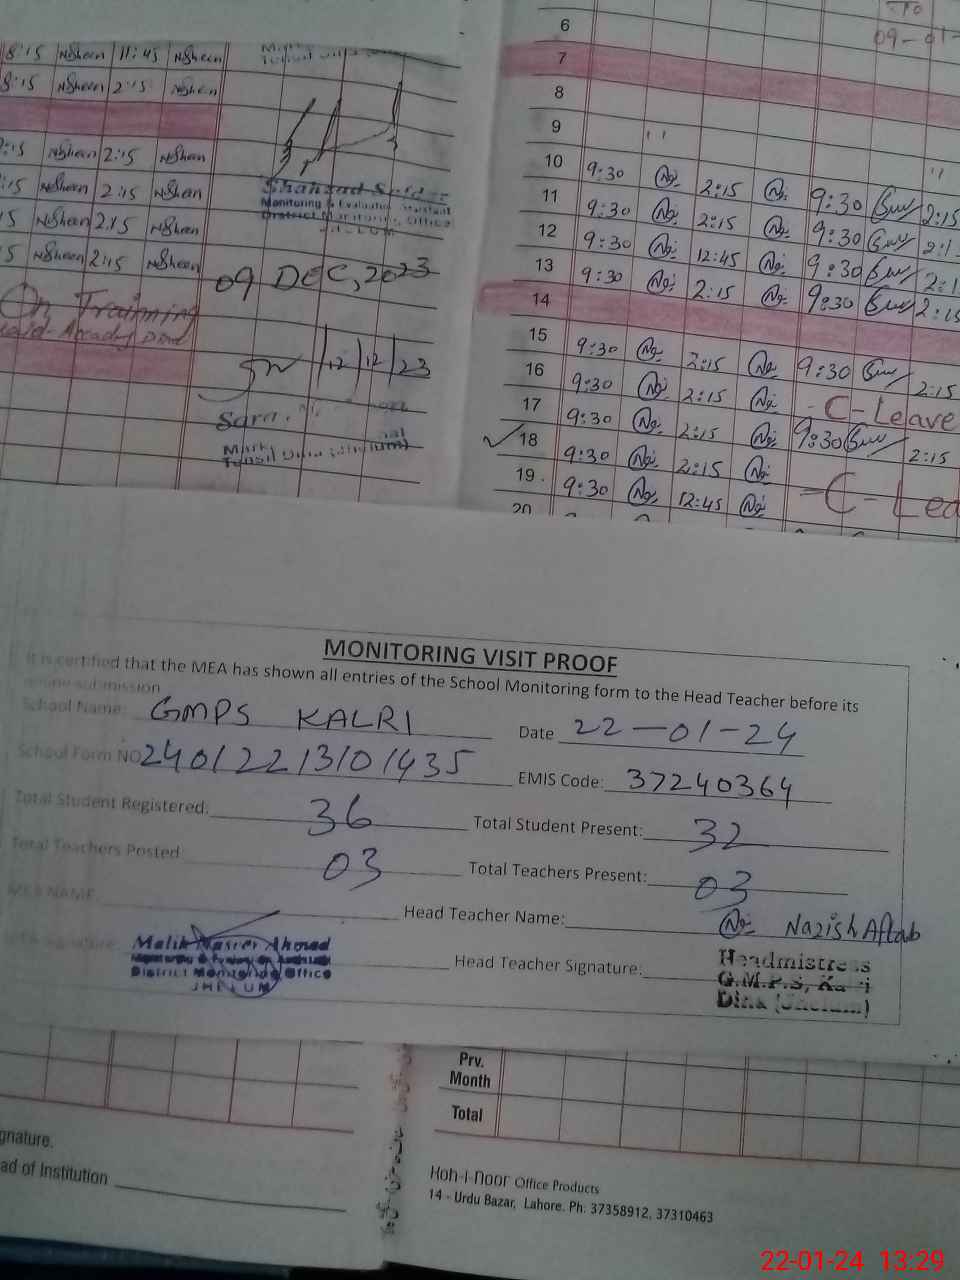 8:15 NSheen 11:45 NSheen
8:15 NSheen 2:15 NSheen
2:15 NSheen 2:15 NSheen
:15 NSheen 2:15 NSheen
15 NSheen 2:15 NSheen
5 NSheen 2:15 NSheen
On Trainning
Monitoring & Evaluation Assistant
District Monitoring Office
JHELUM
09 DEC, 2023
12/12/23
Sara
09-01-
6
7
8
9
10 9:30 2:15 9:30 2:15
11 9:30 2:15 9:30
12 9:30 12:45 9:30
13 9:30 2:15 9:30 2:15
14
15 9:30 2:15 9:30 2:15
16 9:30 2:15 C-Leave
17 9:30 2:15 9:30 2:15
18 9:30 2:15
19 9:30 12:45 -C-Lea
20
MONITORING VISIT PROOF
It is certified that the MEA has shown all entries of the School Monitoring form to the Head Teacher before its
online submission
School Name: GMPS KALRI Date 22-01-24
School Form NO 24012213101435 EMIS Code: 37240364
Total Student Registered: 36 Total Student Present: 32
Total Teachers Posted 03 Total Teachers Present: 03
MEA NAME Head Teacher Name: Nazish Aftab
MEA Signature: Head Teacher Signature:
Malik Naseer Ahmad
Monitoring & Evaluation Assistant
District Monitoring Office
JHELUM
Headmistress
G.M.P.S, Kalri
Dina (Jhelum)
Prv.
Month
Total
gnature.
ad of Institution
Koh-i-noor Office Products
14 - Urdu Bazar, Lahore. Ph: 37358912, 37310463
22-01-24 13:29